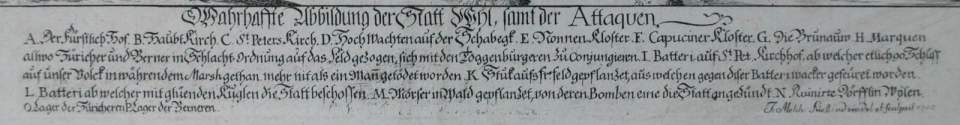 Wahrhaffte Abbildung der Statt Wyl, samt der Attaquen
A. Der Fürstlich Hof. B. Haubt Kirch. C. St. Peters Kirch. D. Hoch Wachten auf der Schabegk. E. Nonnen Kloster. F. Capuciner Kloster. G. Die Brunauw H. Marquen
alwo Züricher und Berner in Schlacht Ordnung auf das Feld gezogen, sich mit den Toggenbürgeren zu Conjungieren. I. Batteri auf St. Pet. Kirchhof, ab welcher etlich 90 Schüss
auf unser Volck in währendem Marsh gethan, mehr nit als ein Mañ getödet worden. K. Stük aufs frefeld gepflanzet, aus welchen gegen diser Batteri wacker gefeüret worden.
L. Batteri ab welcher mit glüenden Kuglen die Statt beschossen. M. Mörser in Wald gepflanzet, von deren Bomben eine die Statt angezündt. N. Ruinirte Dörfflin Wÿlen.
O. Lager der Züricheren P. Lager der Berneren. J. Melch. Füsli